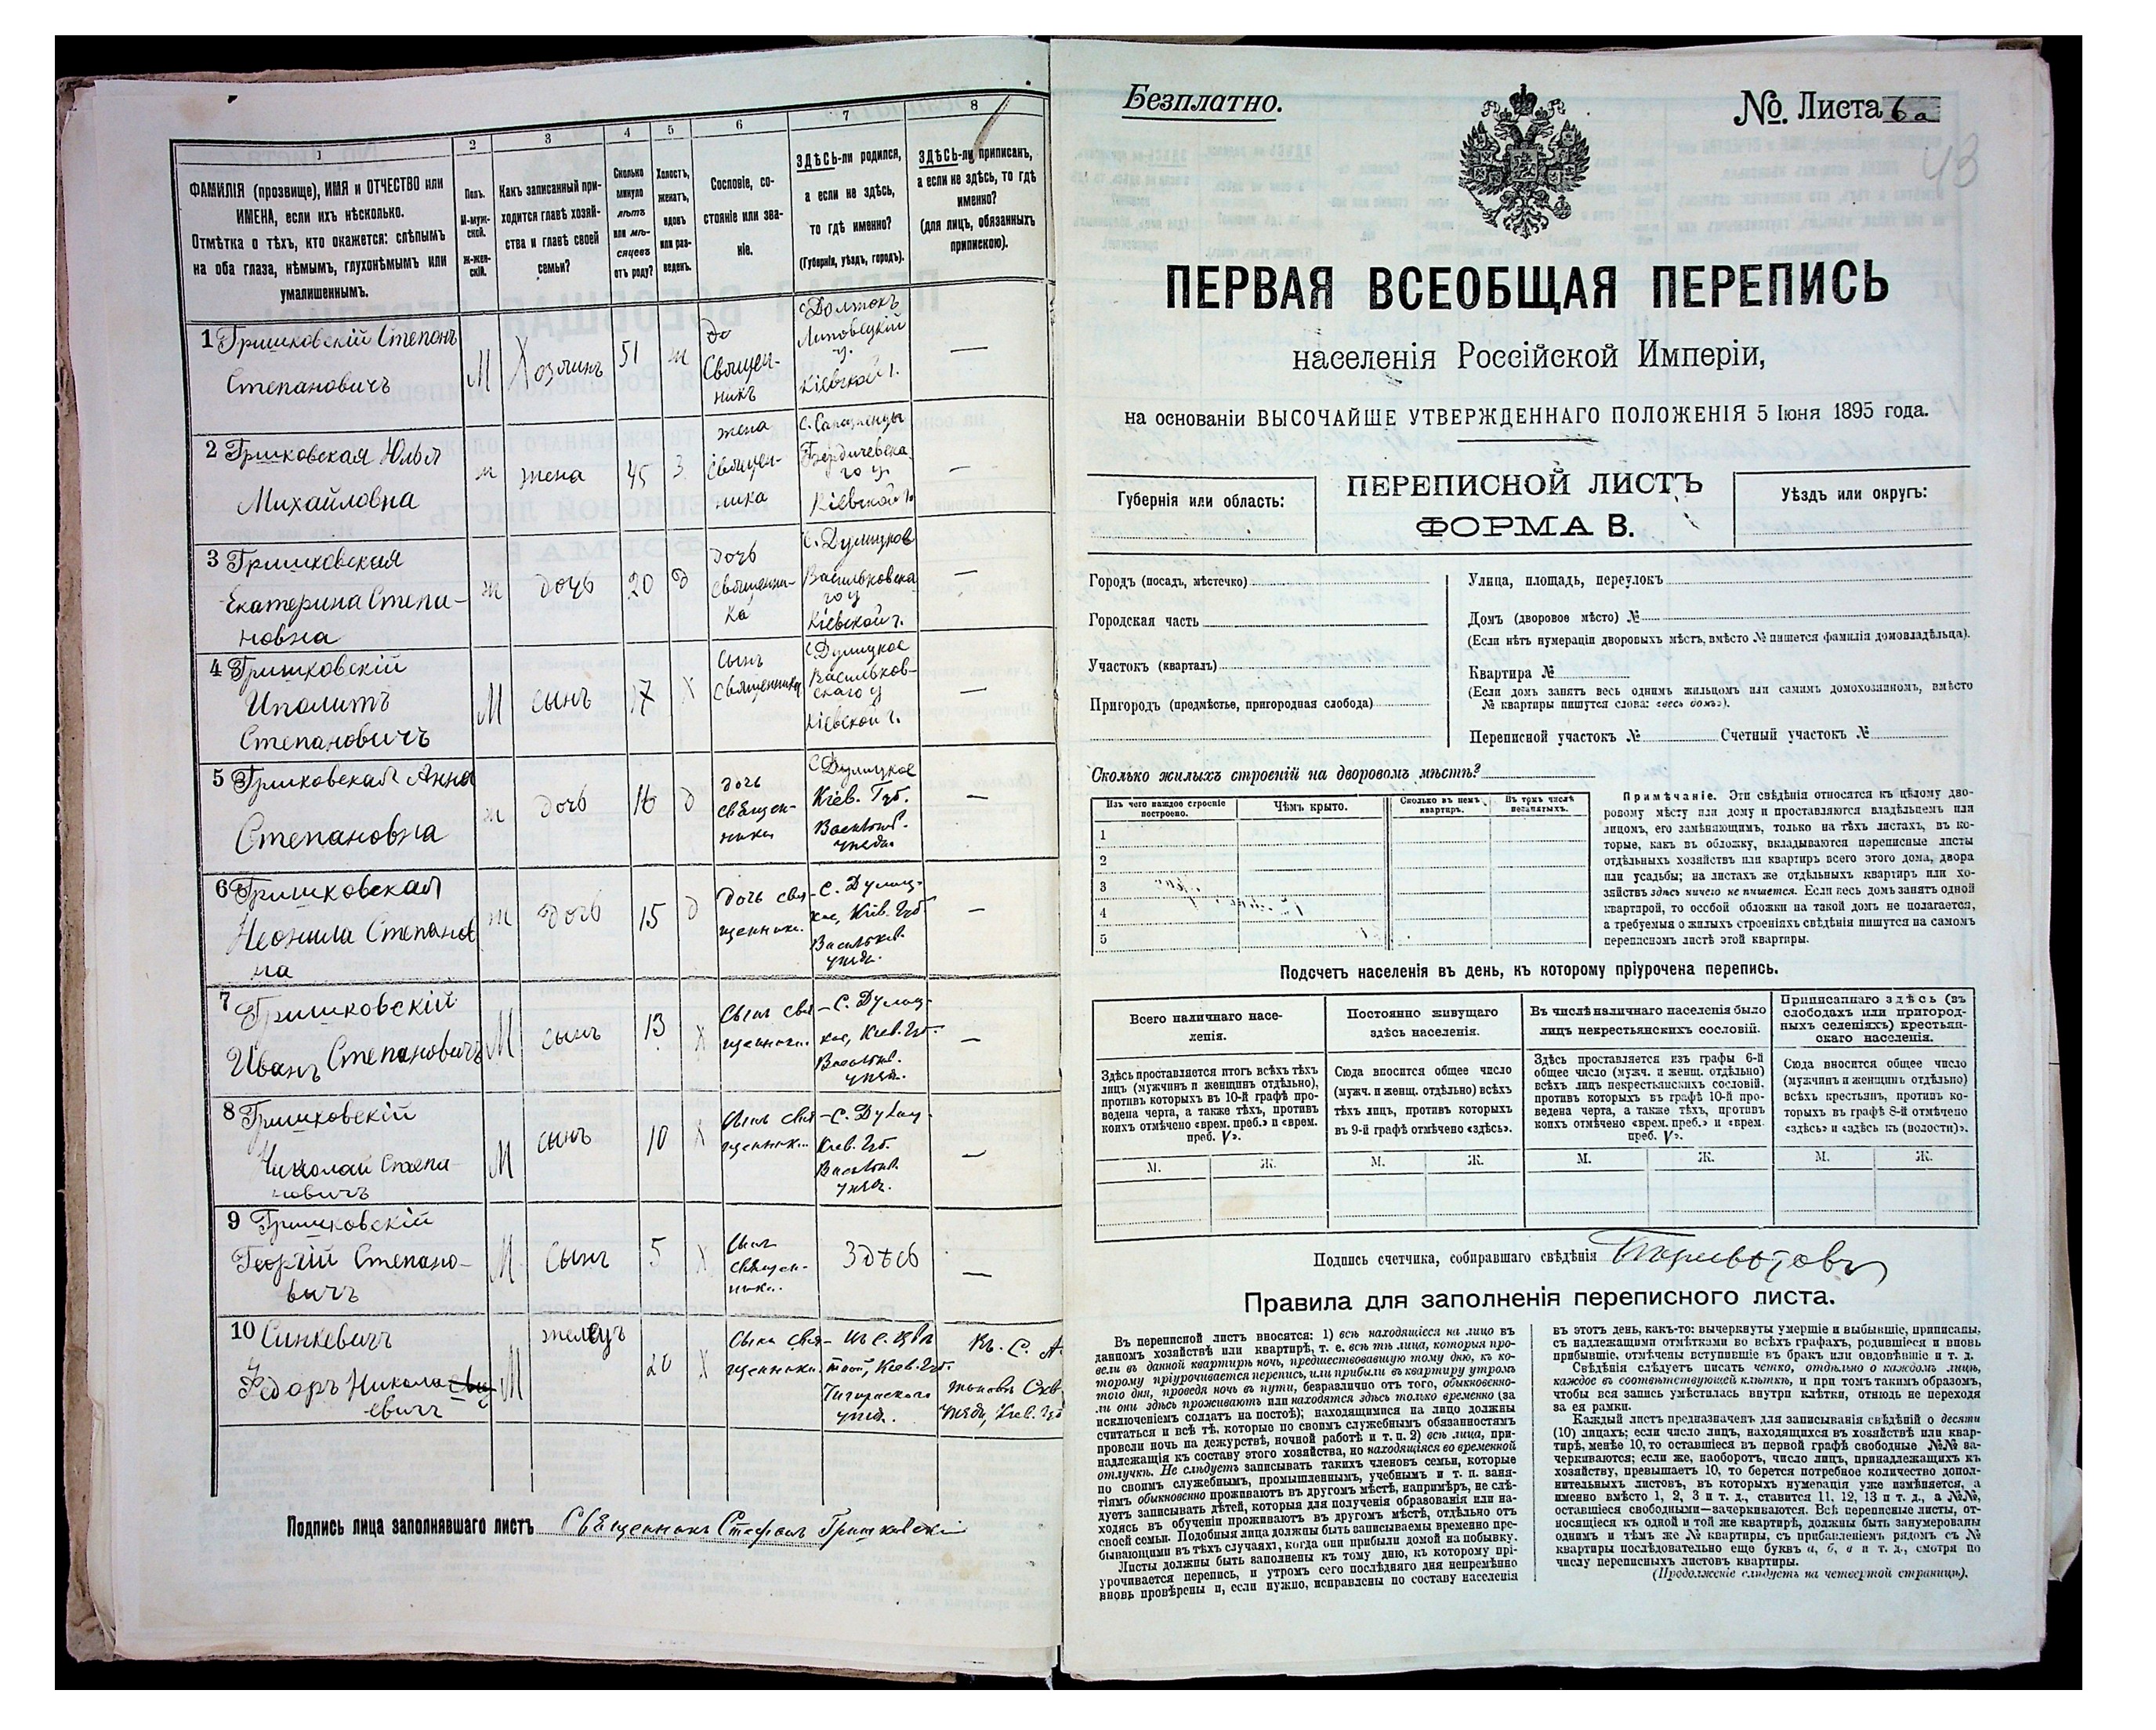 1
2
3
4
5
6
7
8
ФАМИЛІЯ (прозвище), ИМЯ и ОТЧЕСТВО или
ИМЕНА, если ихъ нѣсколько.
Отмѣтка о тѣхъ, кто окажется: слѣпымъ
на оба глаза, нѣмымъ, глухонѣмымъ или
умалишеннымъ.
Полъ.
М-муж-
ской.
Ж-жен-
скій.
Какъ записанный при-
ходится главѣ хозяй-
ства и главѣ своей
семьи?
Сколько
минуло
лѣтъ
или мѣ-
сяцевъ
отъ роду?
Холостъ,
женатъ,
вдовъ
или раз-
веденъ.
Сословіе, со-
стояніе или зва-
ніе.
ЗДѢСЬ-ли родился,
а если не здѣсь,
то гдѣ именно?
(Губернія, уѣздъ, городъ).
ЗДѢСЬ-ли приписанъ,
а если не здѣсь, то гдѣ
именно?
(для лицъ, обязанныхъ
припискою).
1 Гришковскій Степанъ
Степановичъ
М
Хозяинъ
51
ж
Священ-
никъ
Липовецкій
у.
Кіевской г.
—
2 Гришковская Юлія
Михайловна
ж
жена
45
З
жена
Священ-
ника
Бердичевска
го у.
Кіевской г.
—
3 Гришковская
Екатерина Степа-
новна
ж
дочь
20
д
дочь
священни-
ка
с. Дулицкое
Васильковска
го у
Кіевской г.
—
4 Гришковскій
Иполитъ
Степановичъ
М
сынъ
17
Х
сынъ
священника
с. Дулицкое
Васильков-
скаго у
Кіевской г.
—
5 Гришковская Анна
Степановна
ж
дочь
16
д
дочь
священ-
ника
с. Дулицкое
Кіев. Губ.
Васильк.
уѣзда.
—
6 Гришковская
Неонила Степанов
на
ж
дочь
15
д
дочь свя-
щенника.
С. Дулиц-
кое, Кіев. Губ.
Васильков.
уѣзда.
—
7 Гришковскій
Иванъ Степановичъ
М
сынъ
13
Х
Сынъ свя-
щенника.
С. Дулиц-
кое, Кіев. Губ.
Васильк.
уѣзд.
—
8 Гришковскій
Николай Степа-
новичъ
М
сынъ
10
Х
Сынъ свя-
щенника.
С. Дулиц-
Кіев. Губ.
Васильк.
уѣзд.
—
9 Гришковскій
Георгій Степано-
вичъ
М
Сынъ
5
Х
Сынъ
священ-
ника.
Здѣсь
—
10 Синкевичъ
Федоръ Никола
евичъ
М
20
Х
Сынъ свя-
щенника.
Кіев. Губ.
Чигиринскаго
уѣзд.
Къ. С.
Скв.
уѣзда, Кіев. Губ
Подпись лица заполнявшаго листъ Священникъ Стефанъ Гришковскій
Безплатно.
№. Листа 6 а
43
ПЕРВАЯ ВСЕОБЩАЯ ПЕРЕПИСЬ
населенія Россійской Имперіи,
на основаніи ВЫСОЧАЙШЕ УТВЕРЖДЕННАГО ПОЛОЖЕНІЯ 5 Іюня 1895 года.
Губернія или область:
ПЕРЕПИСНОЙ ЛИСТЪ
ФОРМА В.
Уѣздъ или округъ:
Городъ (посадъ, мѣстечко)
Городская часть
Участокъ (кварталъ)
Пригородъ (предмѣстье, пригородная слобода)
Улица, площадь, переулокъ
Домъ (дворовое мѣсто) №
(Если нѣтъ нумераціи дворовыхъ мѣстъ, вмѣсто № пишется фамилія домовладѣльца).
Квартира №
(Если домъ занятъ весь однимъ жильцомъ или самимъ домохозяиномъ, вмѣсто
№ квартиры пишутся слова: «весь домъ»).
Переписной участокъ № Счетный участокъ №
Сколько жилыхъ строеній на дворовомъ мѣстѣ?
Изъ чего каждое строеніе
построено.
Чѣмъ крыто.
Сколько въ немъ
квартиръ.
Въ томъ числѣ
незанятыхъ.
1
2
3
4
5
Примѣчаніе. Эти свѣдѣнія относятся къ цѣлому дво-
ровому мѣсту или дому и проставляются владѣльцемъ или
лицомъ, его замѣняющимъ, только на тѣхъ листахъ, въ ко-
торые, какъ въ обложку, вкладываются переписные листы
отдѣльныхъ хозяйствъ или квартиръ всего этого дома, двора
или усадьбы; на листахъ же отдѣльныхъ квартиръ или хо-
зяйствъ здѣсь ничего не пишется. Если весь домъ занятъ одной
квартирой, то особой обложки на такой домъ не полагается,
а требуемыя о жилыхъ строеніяхъ свѣдѣнія пишутся на самомъ
переписномъ листѣ этой квартиры.
Подсчетъ населенія въ день, къ которому пріурочена перепись.
Всего наличнаго насе-
ленія.
Здѣсь проставляется итогъ всѣхъ тѣхъ
лицъ (мужчинъ и женщинъ отдѣльно),
противъ которыхъ въ 10-й графѣ про-
ведена черта, а также тѣхъ, противъ
коихъ отмѣчено «врем. преб.» и «врем.
преб. V».
Постоянно живущаго
здѣсь населенія.
Сюда вносится общее число
(мужч. и женщ. отдѣльно) всѣхъ
тѣхъ лицъ, противъ которыхъ
въ 9-й графѣ отмѣчено «здѣсь».
Въ числѣ наличнаго населенія было
лицъ некрестьянскихъ сословій.
Здѣсь проставляется изъ графы 6-й
общее число (мужч. и женщ. отдѣльно)
всѣхъ лицъ некрестьянскихъ сословій.
противъ которыхъ въ графѣ 10-й про-
ведена черта, а также тѣхъ, противъ
коихъ отмѣчено «врем. преб.» и «врем.
преб. V».
Приписаннаго здѣсь (въ
слободахъ или пригород-
ныхъ селеніяхъ) крестьян-
скаго населенія.
Сюда вносится общее число
(мужчинъ и женщинъ отдѣльно)
всѣхъ крестьянъ, противъ ко-
торыхъ въ графѣ 8-й отмѣчено
«здѣсь» и «здѣсь къ (волости)».
М. Ж. М. Ж. М. Ж. М. Ж.
Подпись счетчика, собиравшаго свѣдѣнія
Правила для заполненія переписного листа.
Въ переписной листъ вносятся: 1) всѣ находящіеся на лицо въ
данномъ хозяйствѣ или квартирѣ, т. е. всѣ тѣ лица, которыя про-
вели въ данной квартирѣ ночь, предшествовавшую тому дню, къ ко-
торому пріурочивается перепись, или прибыли въ квартиру утромъ
того дня, проведя ночь въ пути, безразлично отъ того, обыкновенно-
ли они здѣсь проживаютъ или находятся здѣсь только временно (за
исключеніемъ солдатъ на постоѣ); находящимися на лицо должны
считаться и всѣ тѣ, которые по своимъ служебнымъ обязанностямъ
провели ночь на дежурствѣ, ночной работѣ и т. п. 2) всѣ лица, при-
надлежащія къ составу этого хозяйства, но находящіяся во временной
отлучкѣ. Не слѣдуетъ записывать такихъ членовъ семьи, которые
по своимъ служебнымъ, промышленнымъ, учебнымъ и т. п. заня-
тіямъ обыкновенно проживаютъ въ другомъ мѣстѣ, напримѣръ, не слѣ-
дуетъ записывать дѣтей, которыя для полученія образованія или на-
ходясь въ обученіи проживаютъ въ другомъ мѣстѣ, отдѣльно отъ
своей семьи. Подобныя лица должны быть записываемы временно пре-
бывающими въ тѣхъ случаяхъ, когда они прибыли домой на побывку.
Листы должны быть заполнены къ тому дню, къ которому прі-
урочивается перепись, и утромъ сего послѣдняго дня непремѣнно
вновь провѣрены и, если нужно, исправлены по составу населенія
въ этотъ день, какъ-то: вычеркнуты умершіе и выбывшіе, приписаны,
съ надлежащими отмѣтками во всѣхъ графахъ, родившіеся и вновь
прибывшіе, отмѣчены вступившіе въ бракъ или овдовѣвшіе и т. д.
Свѣдѣнія слѣдуетъ писать четко, отдѣльно о каждомъ лицѣ,
каждое въ соотвѣтствующей клѣткѣ, и при томъ такимъ образомъ,
чтобы вся запись умѣстилась внутри клѣтки, отнюдь не переходя
за ея рамки.
Каждый листъ предназначенъ для записыванія свѣдѣній о десяти
(10) лицахъ; если число лицъ, находящихся въ хозяйствѣ или квар-
тирѣ, менѣе 10, то оставшіеся въ первой графѣ свободные №№ за-
черкиваются; если же, наоборотъ, число лицъ, принадлежащихъ къ
хозяйству, превышаетъ 10, то берется потребное количество допол-
нительныхъ листовъ, въ которыхъ нумерація уже измѣняется, а
именно вмѣсто 1, 2, 3 и т. д., ставится 11, 12, 13 и т. д., а №№,
оставшіеся свободными—зачеркиваются. Всѣ переписные листы, от-
носящіеся къ одной и той же квартирѣ, должны быть занумерованы
однимъ и тѣмъ же № квартиры, съ прибавленіемъ рядомъ съ №
квартиры послѣдовательно еще буквъ а, б, в и т. д., смотря по
числу переписныхъ листовъ квартиры.
(Продолженіе слѣдуетъ на четвертой страницѣ).